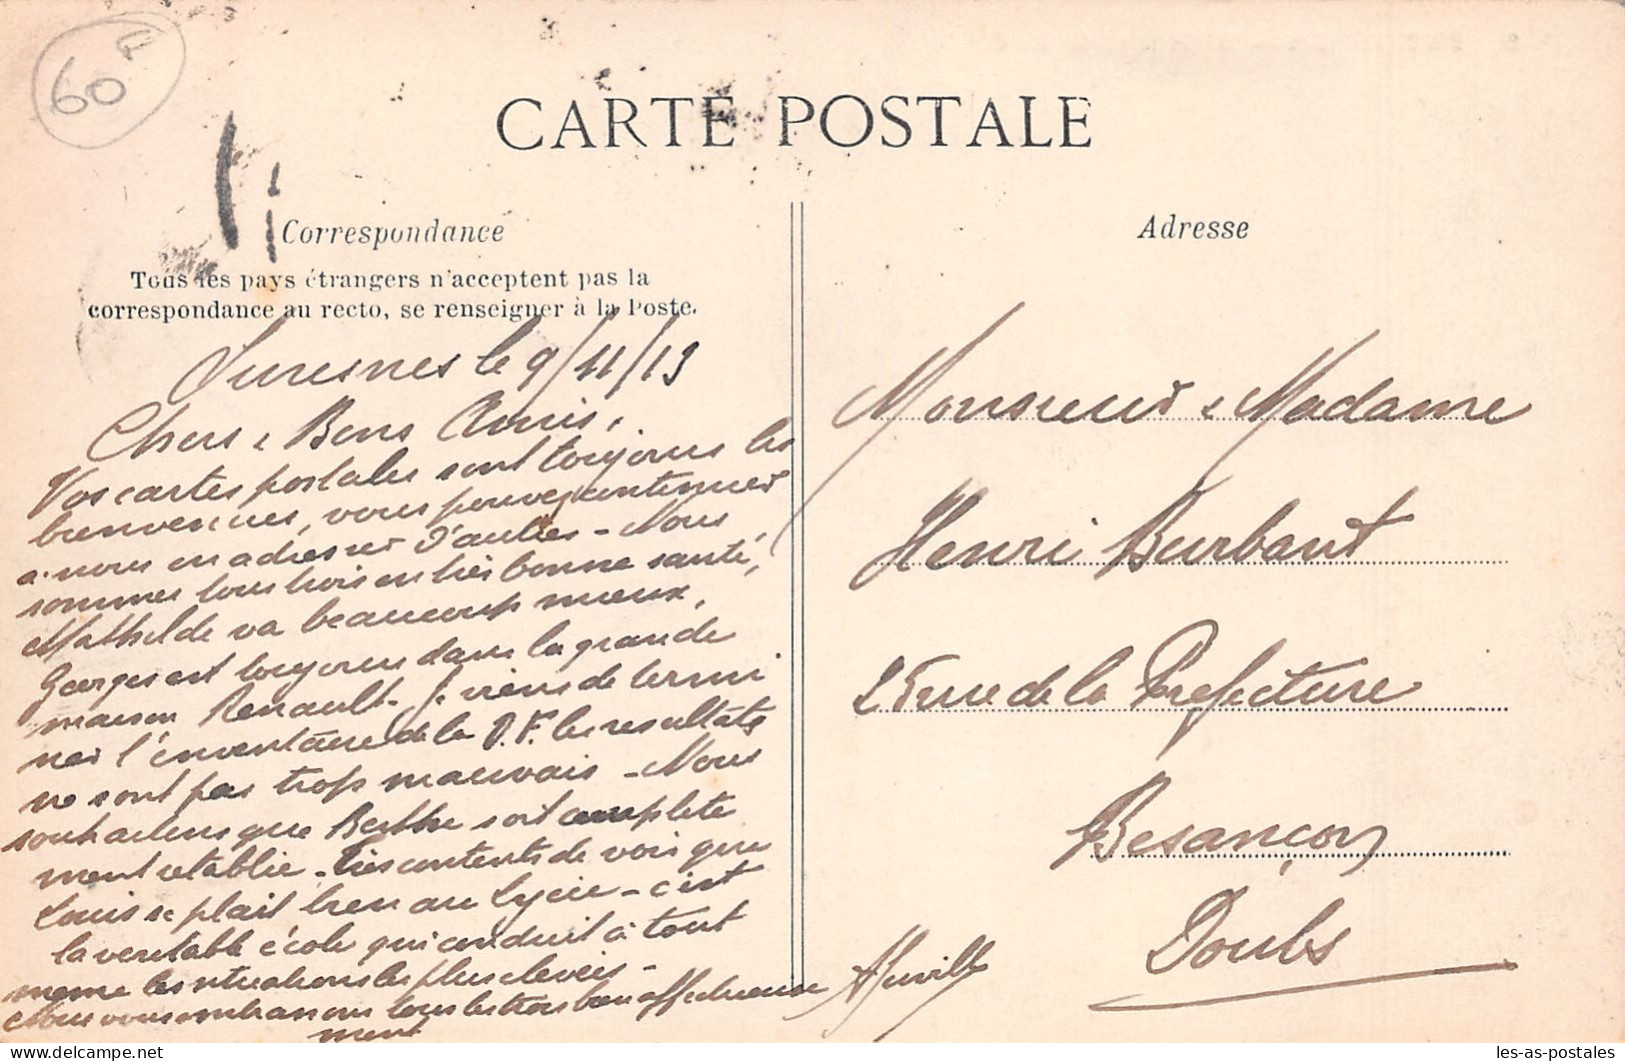 60F
CARTE POSTALE
Correspondance
Tous les pays étrangers n'acceptent pas la
correspondance au recto, se renseigner à la Poste.
Suresnes le 9/11/13
Chers & Bons Amis,
Vos cartes postales sont toujours les
bienvenues, vous pouvez continuer
à nous en adresser d'autres - Nous
sommes tous trois en très bonne santé,
Mathilde va beaucoup mieux,
Georges est toujours dans la grande
maison Renault. Je viens de termi
ner l'inventaire de la D.F. les resultats
ne sont pas trop mauvais - Nous
souhaitons que Berthe soit complete
ment retablie - Très contents de voir que
Louis se plait bien au Lycée - c'est
la veritable école qui conduit à tout
meme les situations les plus elevées -
Nous vous embrassons tous les trois bien affectueuse
ment
Adresse
Monsieur & Madame
Henri Burbant
25 rue de la Prefecture
Besançon
Doubs
les-as-postales
les-as-postales.delcampe.net